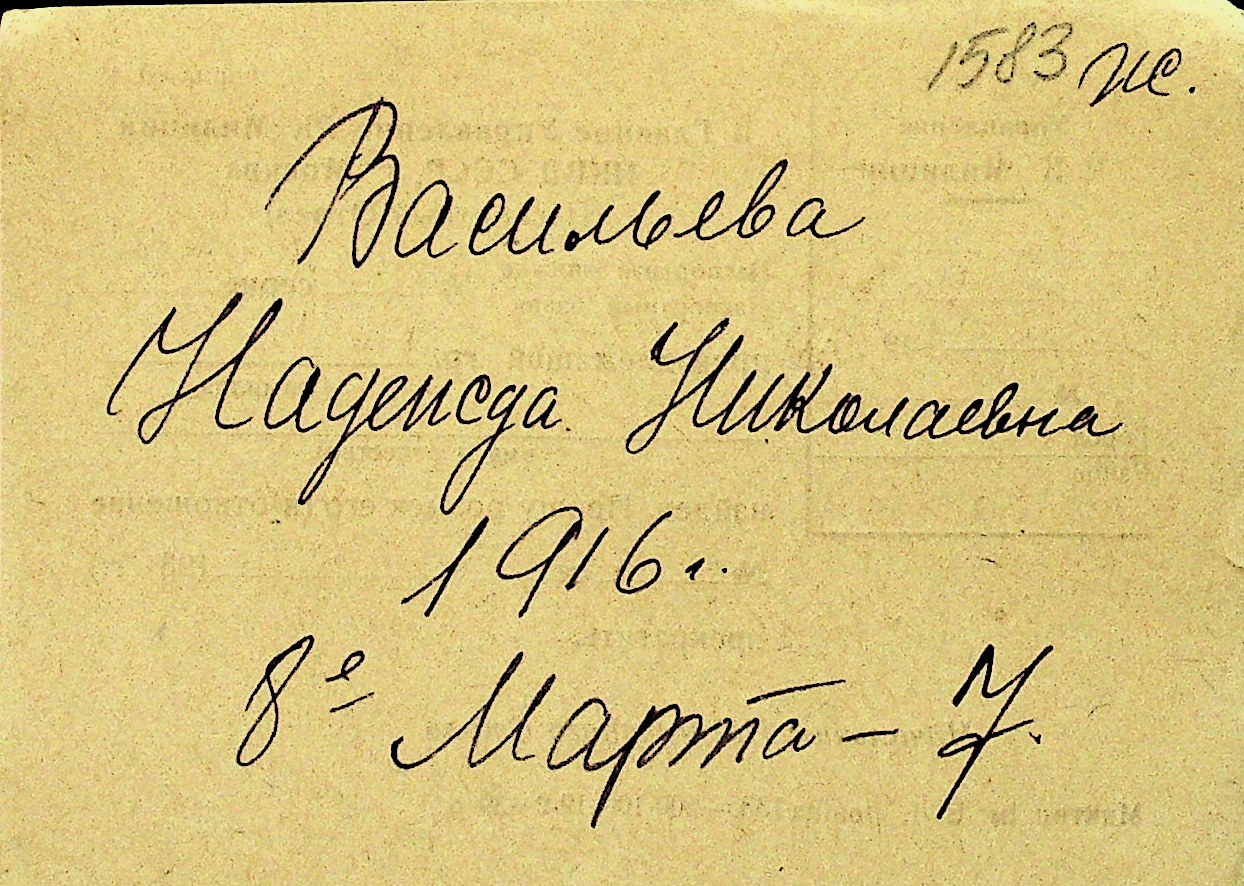 1583 ж.
Васильева
Надежда Николаевна
1916 г.
8е Марта – 7.